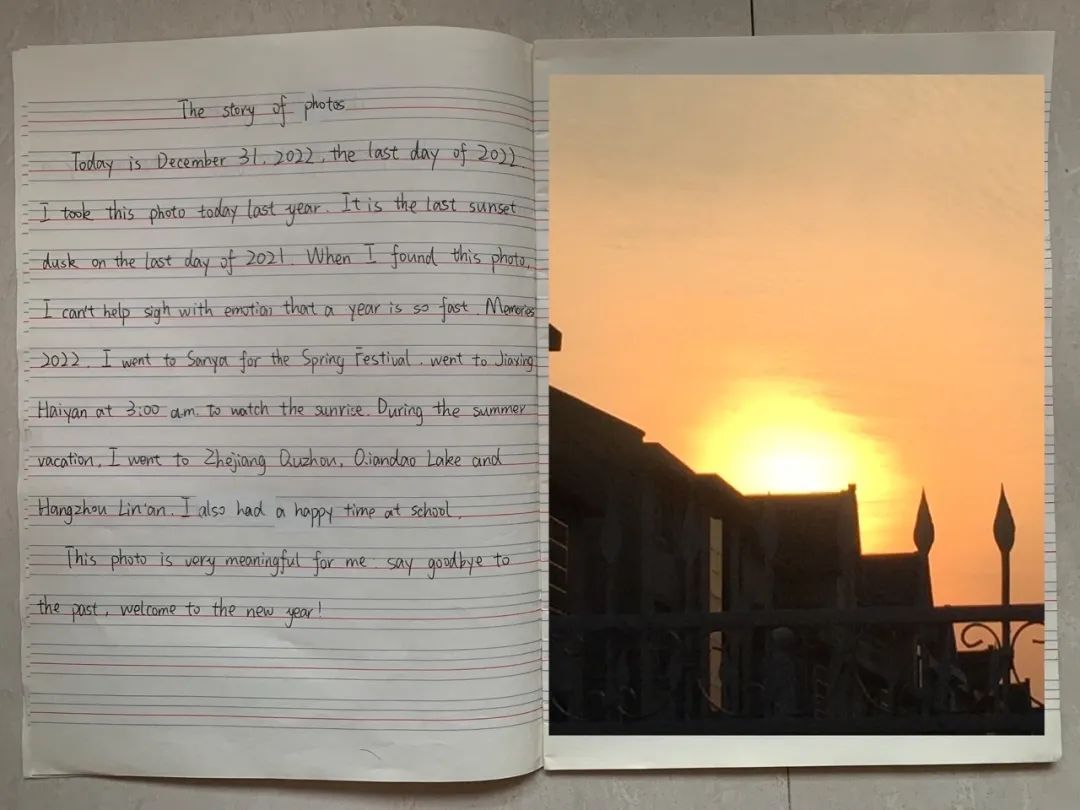 The story of photos
Today is December 31, 2022, the last day of 2022.
I took this photo today last year. It is the last sunset
dusk on the last day of 2021. When I found this photo,
I can't help sigh with emotion that a year is so fast. Memories
2022. I went to Sanya for the Spring Festival. went to Jiaxing
Haiyan at 3:00 a.m. to watch the sunrise. During the summer
vacation, I went to Zhejiang Quzhou, Qiandao Lake and
Hangzhou Lin'an. I also had a happy time at school.
This photo is very meaningful for me. say goodbye to
the past, welcome to the new year!